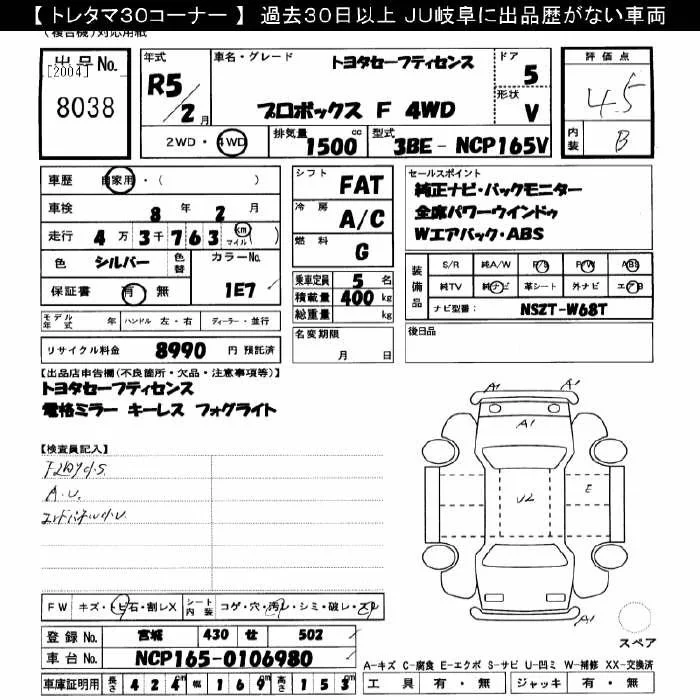 【 トレタマ30コーナー 】 過去30日以上 JU岐阜に出品歴がない車両
(複合機)対応用紙
出品No.
[2004]
8038
年式
R5/2月
車名・グレード
トヨタセーフティセンス
プロボックス F 4WD
ドア
5
形状
V
2WD・4WD
排気量 1500 cc
型式 3BE - NCP165V
評価点
4.5
内装
B
車歴 自家用・( )
車検 8年 2月
走行 4万3千763 km マイル ( )
色 シルバー 色替 カラーNo.
保証書 有 無 1E7
モデル年式 年 ハンドル 左・右 ディーラー・並行
リサイクル料金 8990 円 預託済
シフト FAT
冷房 A/C
燃料 G
乗車定員 5 名
積載量 400 kg
総重量 kg
名変期限
月 日
セールスポイント
純正ナビ・バックモニター
全席パワーウインドゥ
Wエアバック・ABS
装備品
S/R 純A/W P/S P/W ABS
純TV 純ナビ 革シート 外ナビ エアB
ナビ型番: NSZT-W68T
後日品
【出品店申告欄(不良箇所・欠品・注意事項等)】
トヨタセーフティセンス
電格ミラー キーレス フォグライト
【検査員記入】
A.U.
A1 A1
A1
U2
E
A1
A1
スペア
FW キズ・トビ石・割レX シート内装 コゲ・穴・汚レ・シミ・破レ・スレ
登録 No. 宮城 430 せ 502
車台 No. NCP165-0106980
車庫証明用 長さ 424 cm 幅 169 cm 高さ 153 cm
A-キズ C-腐食 E-エクボ S-サビ U-凹ミ W-補修 XX-交換済
工具 有・無 ジャッキ 有・無